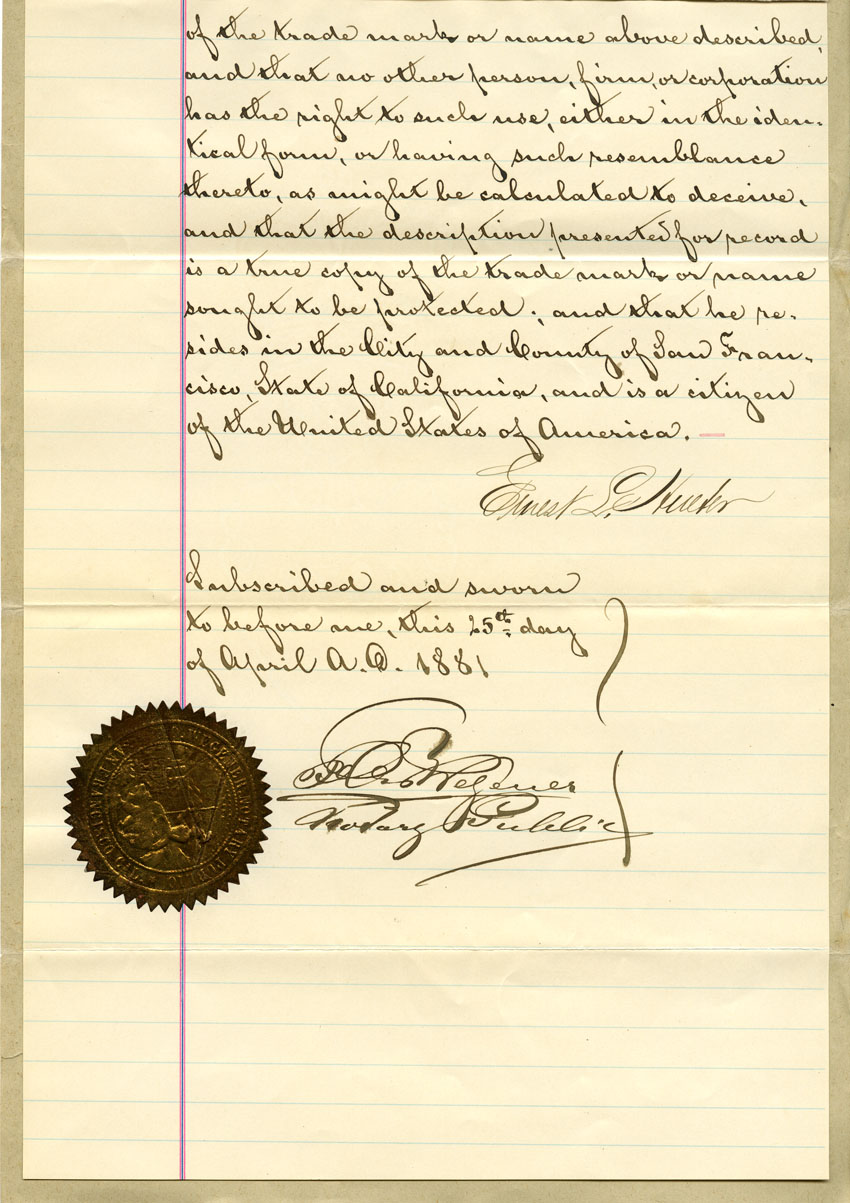 of the trade mark or name above described,
and that no other person, firm, or corporation
has the right to such use, either in the iden-
tical form, or having such resemblance
thereto, as might be calculated to deceive,
and that the description presented for record
is a true copy of the trade mark or name
sought to be protected; and that he re-
sides in the City and County of San Fran-
cisco, State of California, and is a citizen
of the United States of America.
Ernest L. Hueter
Subscribed and sworn
to before me, this 25th day
of April A.D. 1881
Wegener
Notary Public
NOTARY PUBLIC